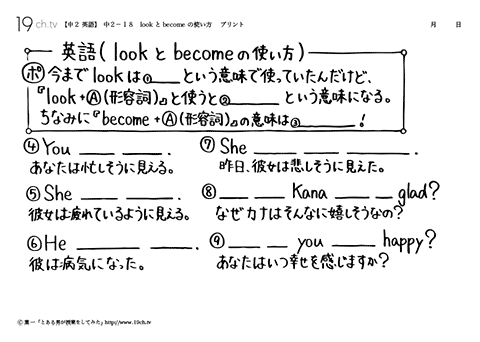 19ch.tv 【中2 英語】 中2-18 look と become の使い方 プリント 月 日
英語(look と become の使い方)
ポ 今まで look は①____という意味で使っていたんだけど、
『look+Ⓐ(形容詞)』と使うと②______という意味になる。
ちなみに『become+Ⓐ(形容詞)』の意味は③______!
④You ____ ____.
あなたは忙しそうに見える。
⑤She ____ ____.
彼女は疲れているように見える。
⑥He ______ ____.
彼は病気になった。
⑦She ____ ____ ______.
昨日、彼女は悲しそうに見えた。
⑧____ ____ Kana ____ glad?
なぜカナはそんなに嬉しそうなの?
⑨____ ____ you ____ happy?
あなたはいつ幸せを感じますか?
Ⓒ 葉一「とある男が授業をしてみた」http://www.19ch.tv